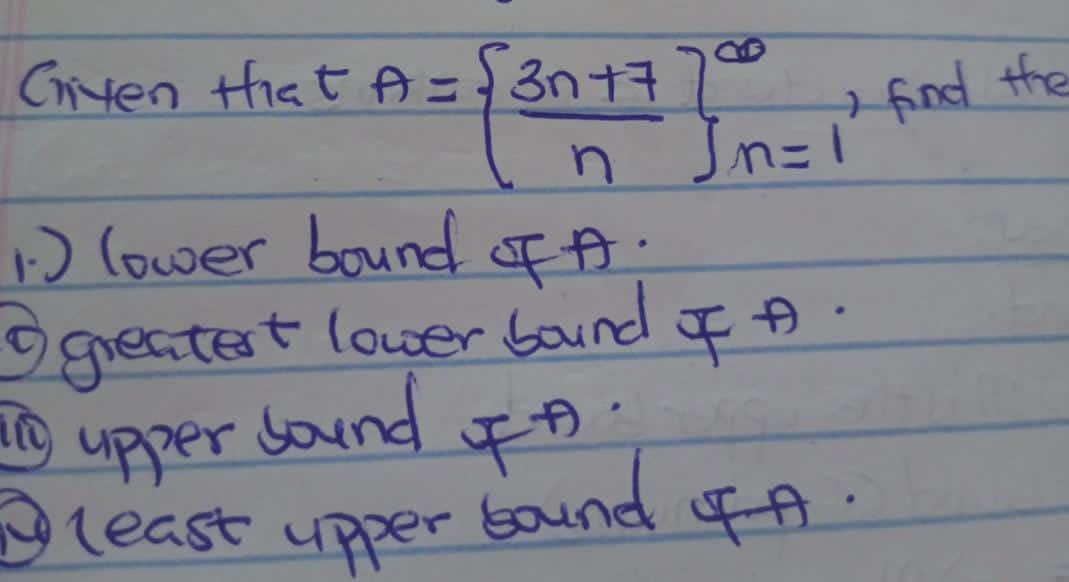 Given that A = { 3n+7 / n }^∞ n=1, find the
i.) lower bound of A.
ii) greatest lower bound of A.
iii) upper bound of A.
iv) least upper bound of A.